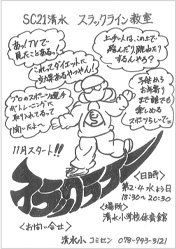 SC21清水 スラックライン教室
あっ!TVで
見たことある。
これってダイエットに
効果あるやつやん!
上手い人は、この上で
跳んだり、腹ぬり
するんやろ?
プロのスポーツ選手
がトレーニングに
取り入れてるって
聞いたよー
子供から
お年寄り
まで誰でも
楽しめる
スポーツらしいで。
11月スタート!!
スラックライン
<日時>
第2・4水よう日
18:30~20:30
<場所>
清水小学校体育館
<お問い合せ>
清水小 コミセン 078-793-3121